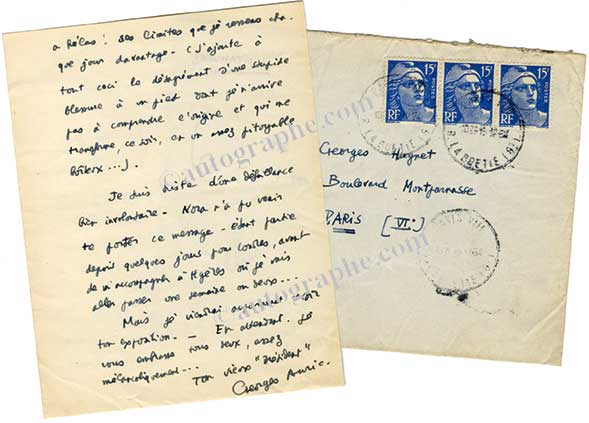 a Hélas ! des limites que je ressens cha-
que jour davantage - (J'ajoute à
tout ceci le désagrément d'une stupide
blessure à un pied dont je n'arrive
pas à comprendre l'origine et qui me
transforme, ce soir, en un assez pitoyable
boiteux...).
Je suis triste d'une défaillance
bien involontaire - Nora n'a pu venir
te porter ce message - étant partie
depuis quelques jours pour Londres, avant
de m'accompagner à Hyères où je vais
aller passer une semaine ou deux...
Mais je viendrai voir
ton exposition - En attendant, je
vous embrasse tous deux, assez
mélancoliquement...
Ton vieux "Président"
Georges Auric -
15 15 15
POSTES
RF RF RF
R. LA BOETIE (8e)
Georges Hugnet
Boulevard Montparnasse
PARIS [VI°.]
PARIS VIII
©autographe.com
©autographe.com